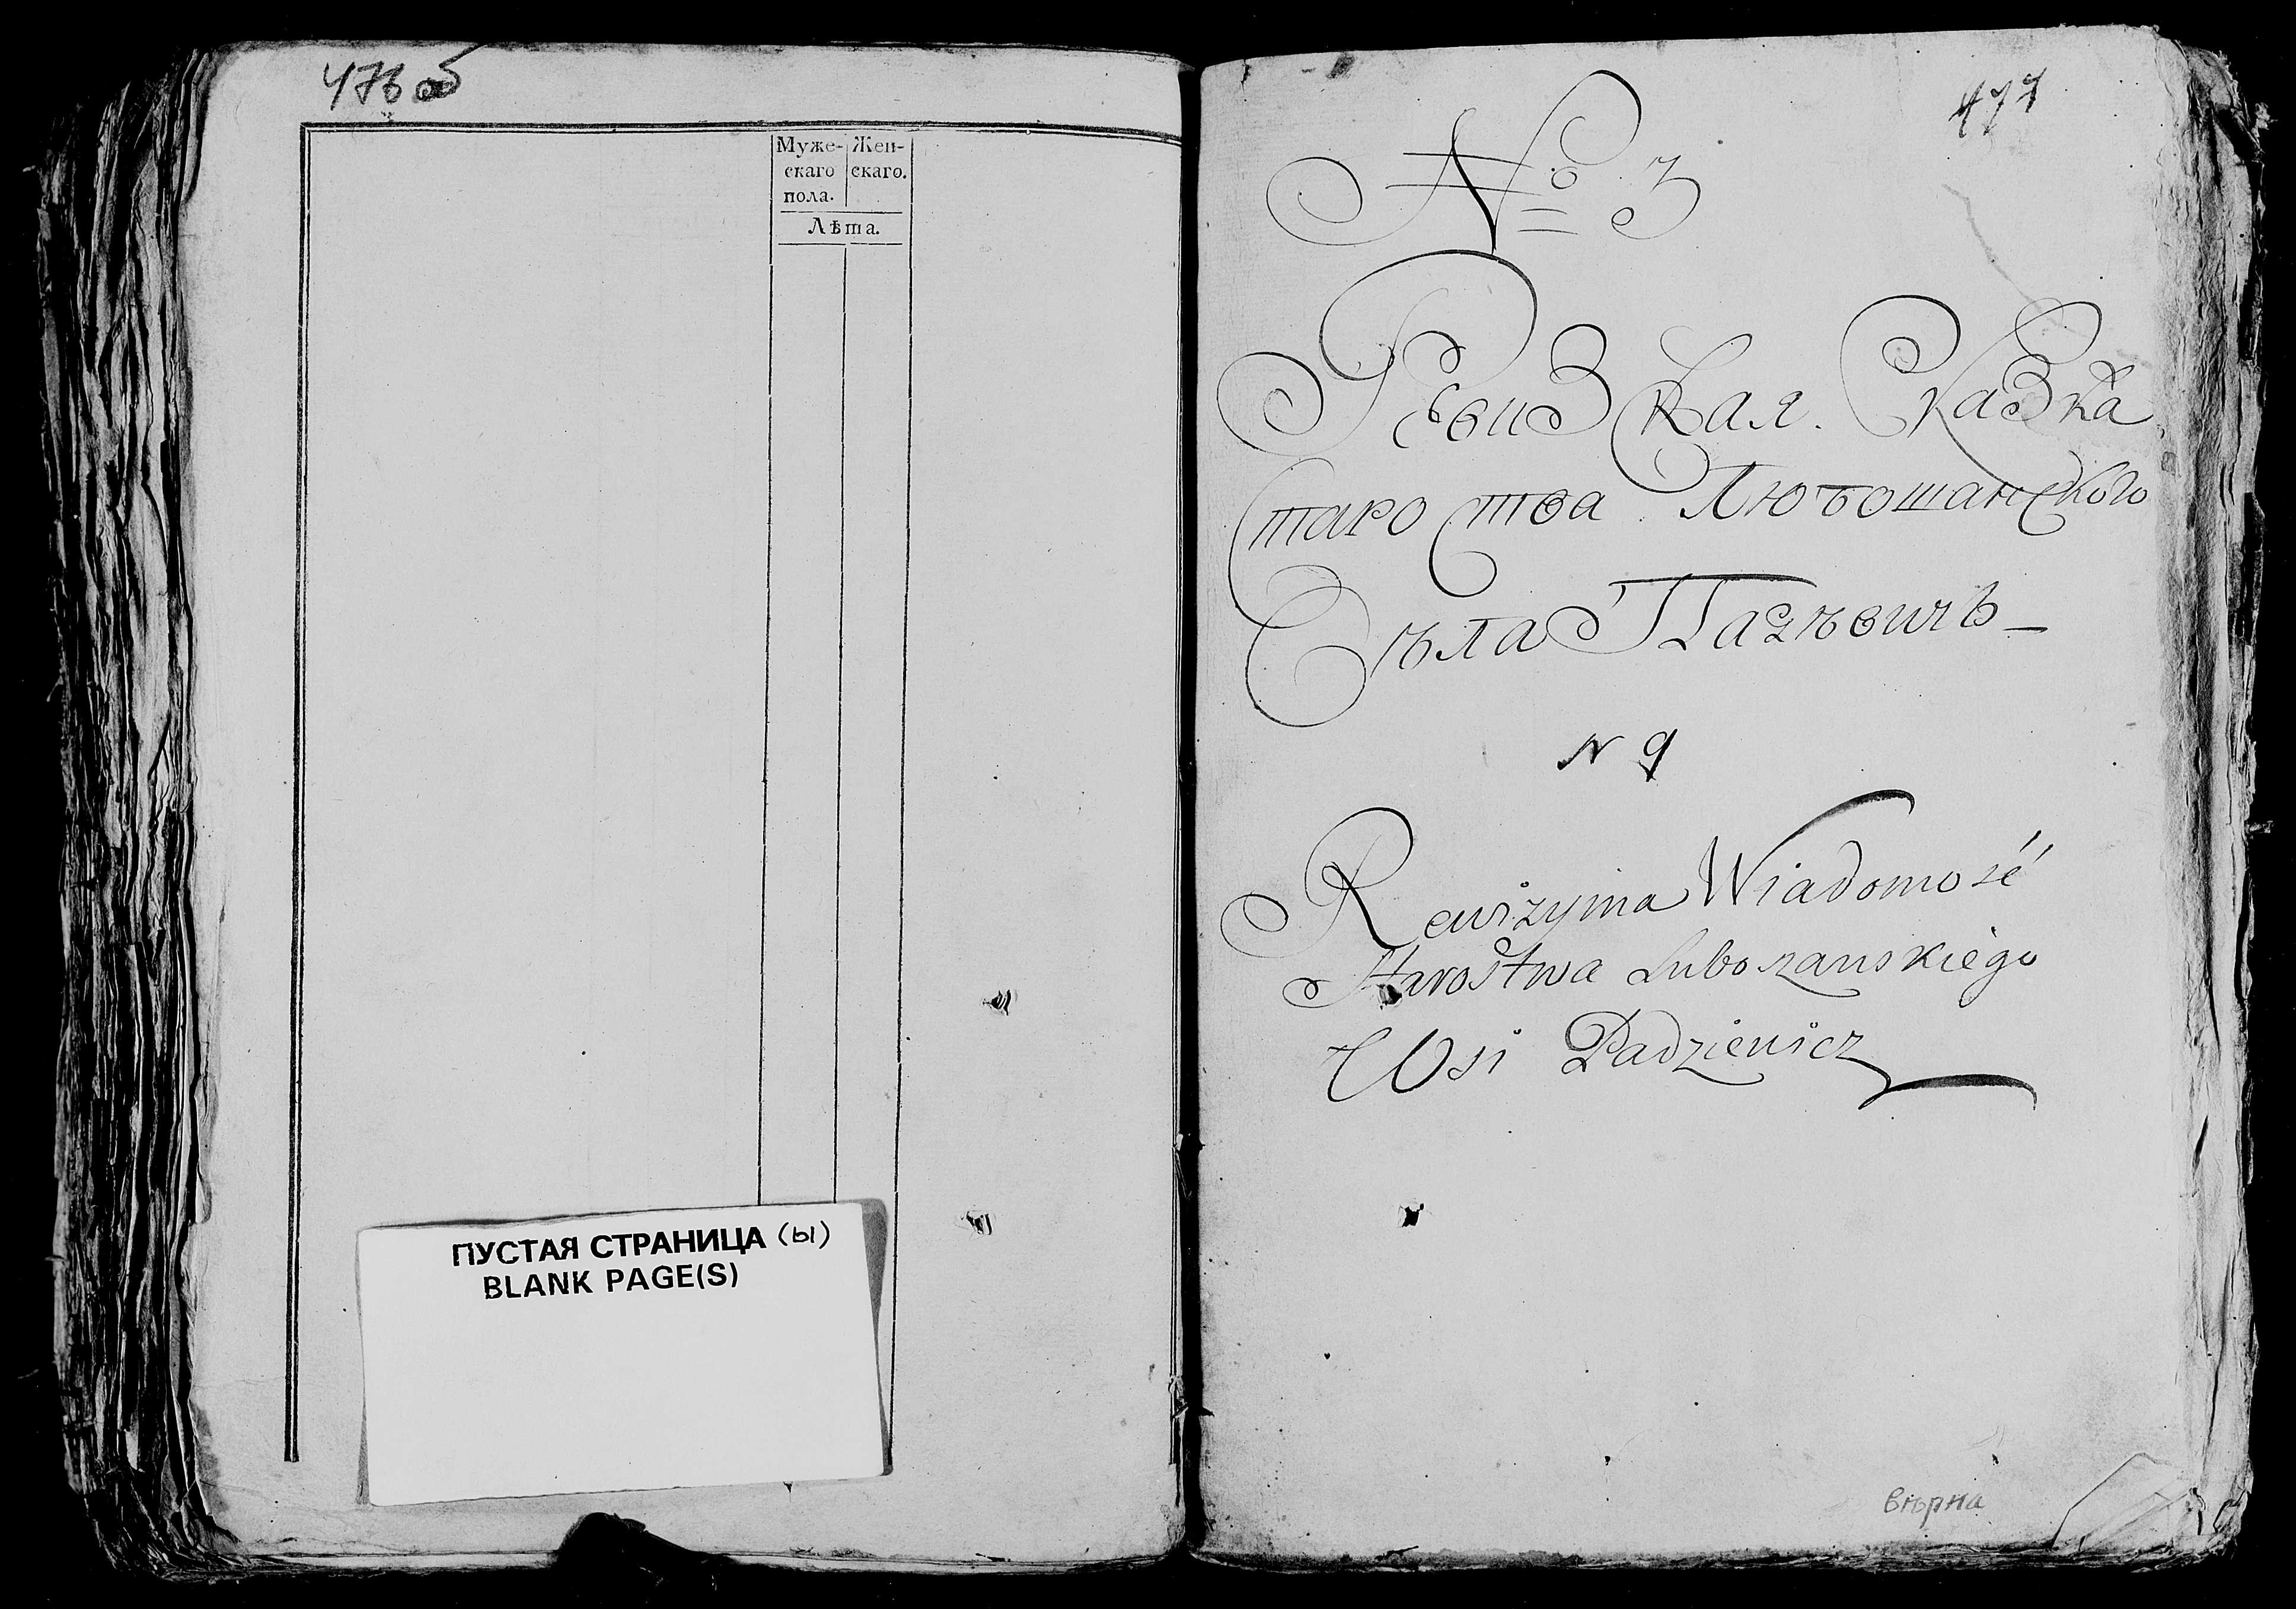 476 об
Муже-
скаго
пола.
Жен-
скаго.
Лѣта.
ПУСТАЯ СТРАНИЦА (ы)
BLANK PAGE(S)
477
№ 3
Ревизская Сказка
Староства Любошанского
Сѣла Пазѣвичъ
N 9
Rewizyina Wiadomość
Starostwa Luboszanskiego
Wsi Padziewicz
вѣрна